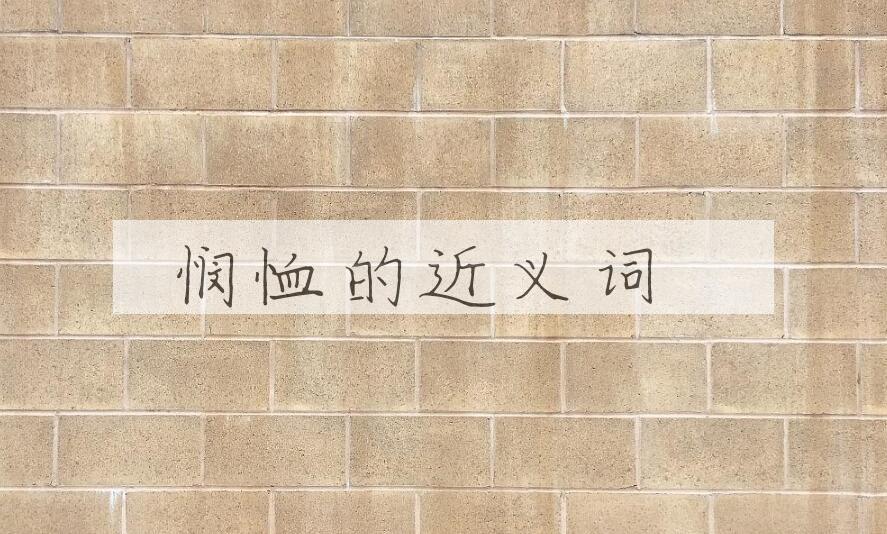 悯恤的近义词